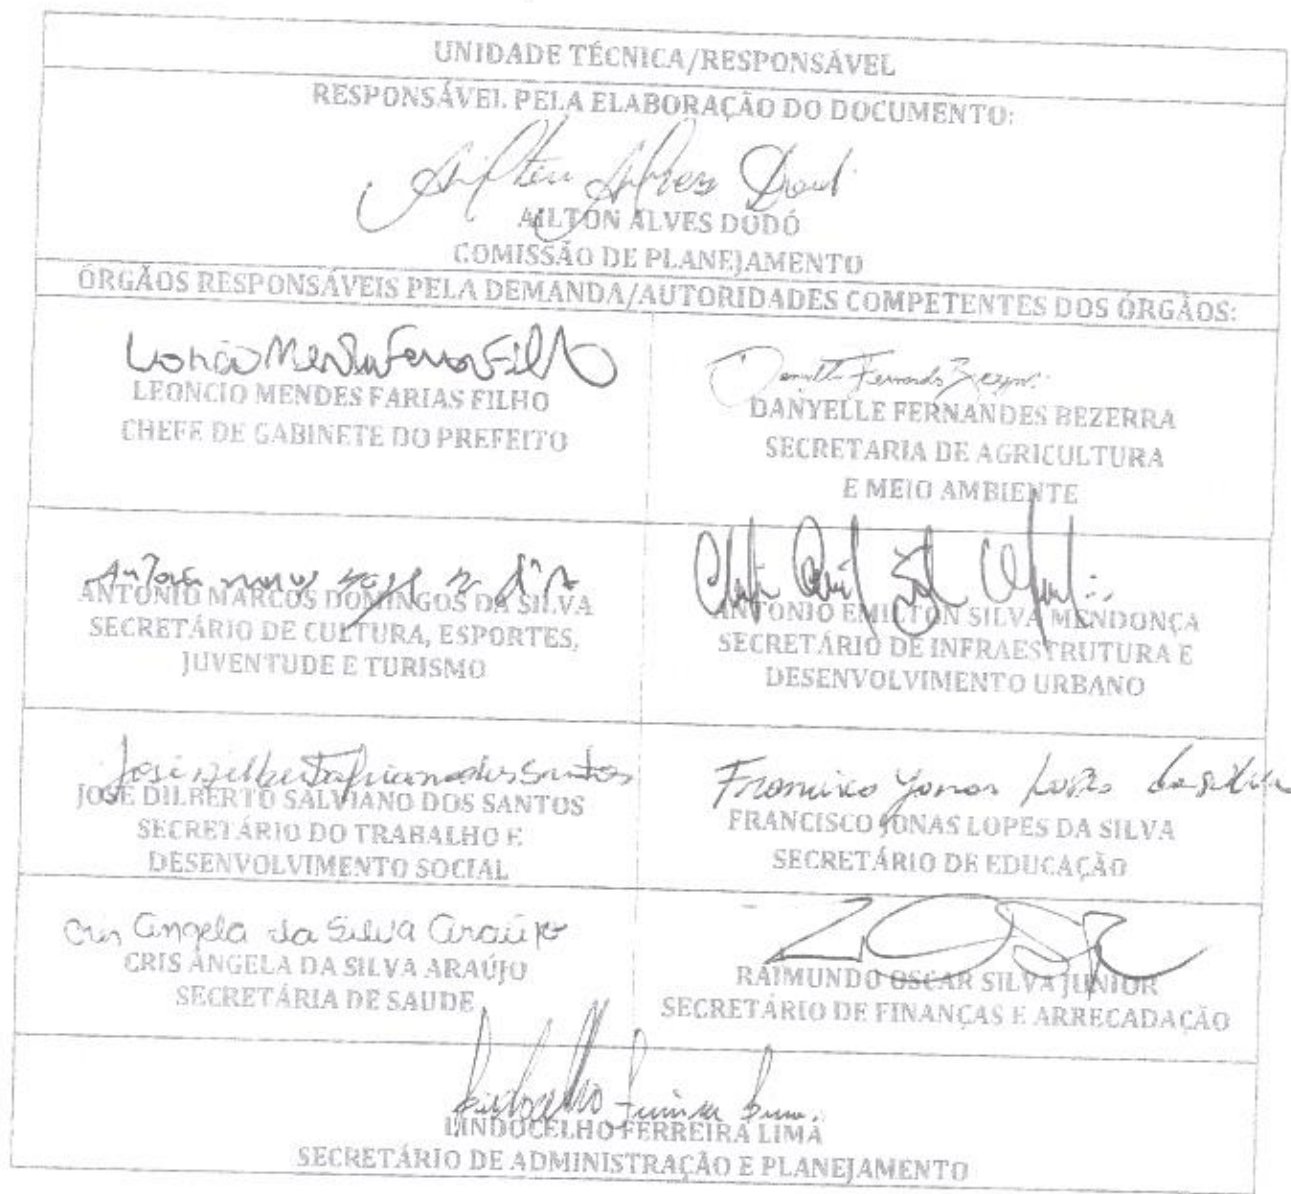 UNIDADE TÉCNICA/RESPONSÁVEL
RESPONSÁVEL PELA ELABORAÇÃO DO DOCUMENTO:
AILTON ALVES DODÓ
COMISSÃO DE PLANEJAMENTO
ÓRGÃOS RESPONSÁVEIS PELA DEMANDA/AUTORIDADES COMPETENTES DOS ÓRGÃOS:
LEONCIO MENDES FARIAS FILHO
CHEFE DE GABINETE DO PREFEITO
DANYELLE FERNANDES BEZERRA
SECRETARIA DE AGRICULTURA
E MEIO AMBIENTE
ANTONIO MARCOS DOMINGOS DA SILVA
SECRETÁRIO DE CULTURA, ESPORTES,
JUVENTUDE E TURISMO
ANTONIO EMILTON SILVA MENDONÇA
SECRETÁRIO DE INFRAESTRUTURA E
DESENVOLVIMENTO URBANO
JOSÉ DILBERTO SALVIANO DOS SANTOS
SECRETÁRIO DO TRABALHO E
DESENVOLVIMENTO SOCIAL
Francisco Jonas Lopes da Silva
FRANCISCO JONAS LOPES DA SILVA
SECRETÁRIO DE EDUCAÇÃO
Cris Angela da Silva Araújo
CRIS ANGELA DA SILVA ARAÚJO
SECRETÁRIA DE SAUDE
RAIMUNDO OSCAR SILVA JUNIOR
SECRETÁRIO DE FINANÇAS E ARRECADAÇÃO
LINDOCELHO FERREIRA LIMA
SECRETÁRIO DE ADMINISTRAÇÃO E PLANEJAMENTO